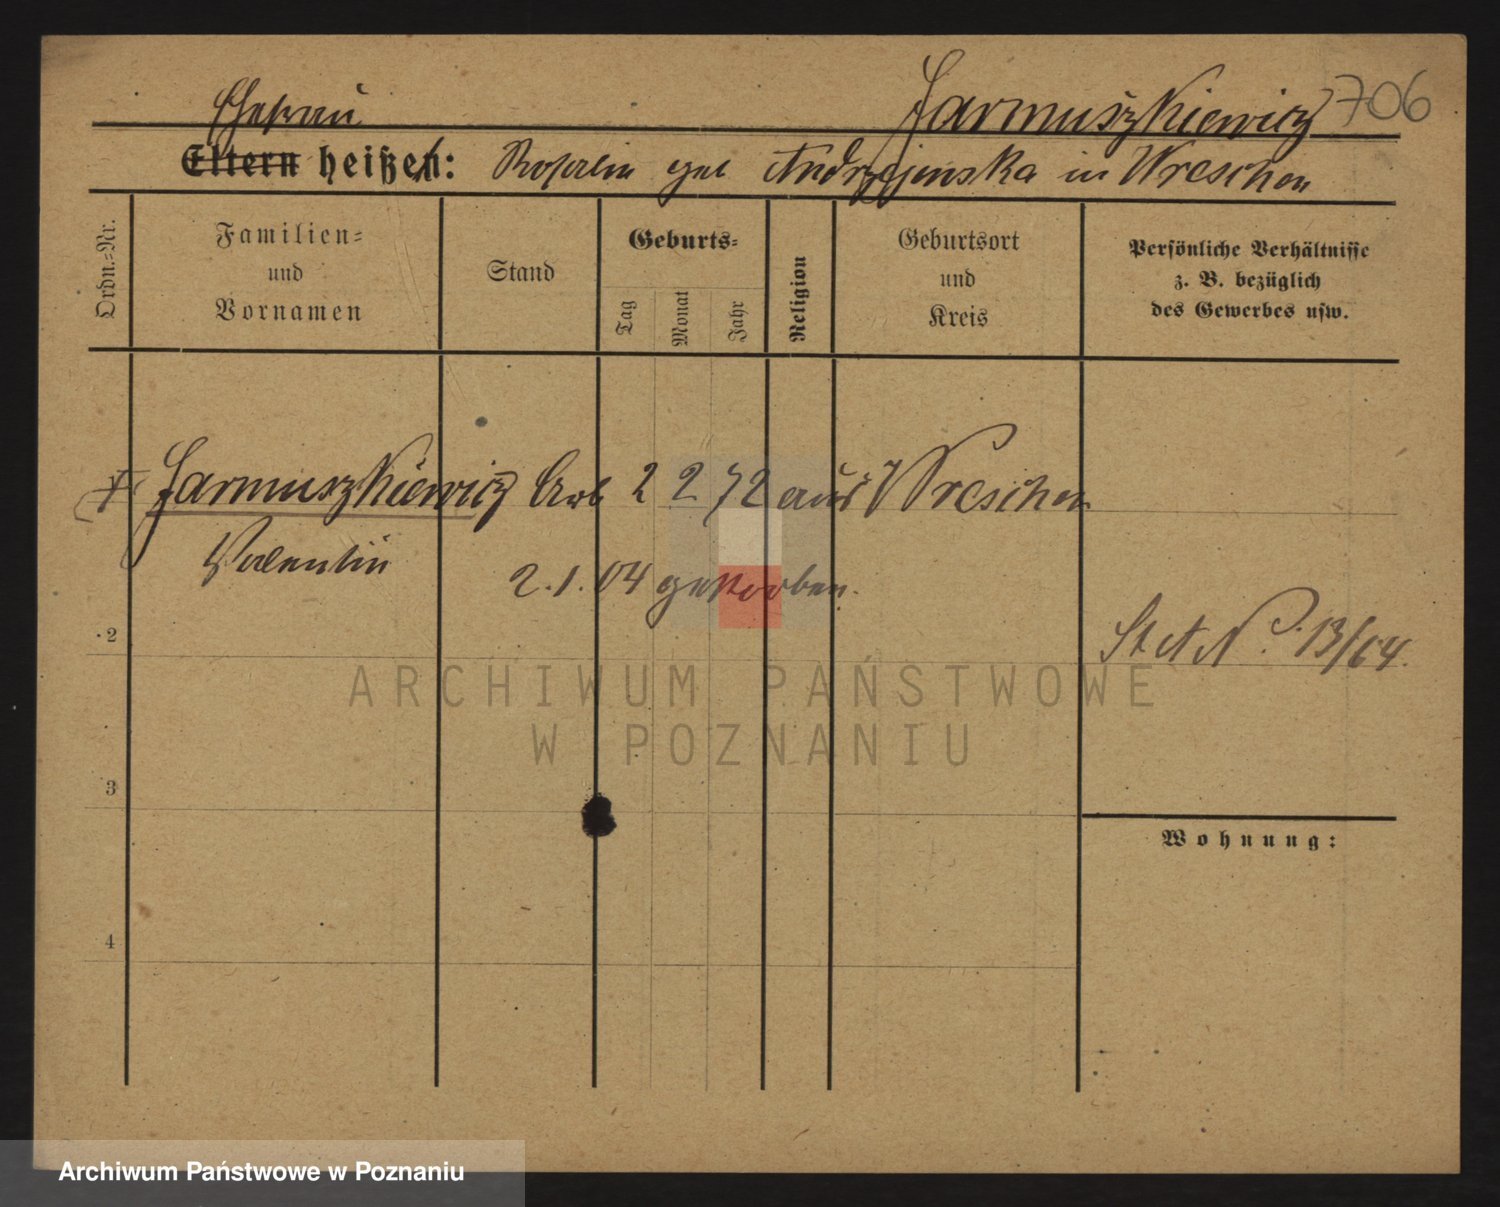 Jarmuszkiewicz 706
Ehefrau
Eltern heißen: Rosalie geb Andrzejewska in Wreschen
Ordn.=Nr.
Familien=
und
Vornamen
Stand
Geburts=
Tag
Monat
Jahr
Religion
Geburtsort
und
Kreis
Persönliche Verhältnisse
z. B. bezüglich
des Gewerbes usw.
Jarmuszkiewicz Arb 2 2 72 aus Wreschen
Valentin
2.1.04 gestorben.
2
St A N. 13/04.
ARCHIWUM PAŃSTWOWE
W POZNANIU
3
Wohnung:
4
Archiwum Państwowe w Poznaniu